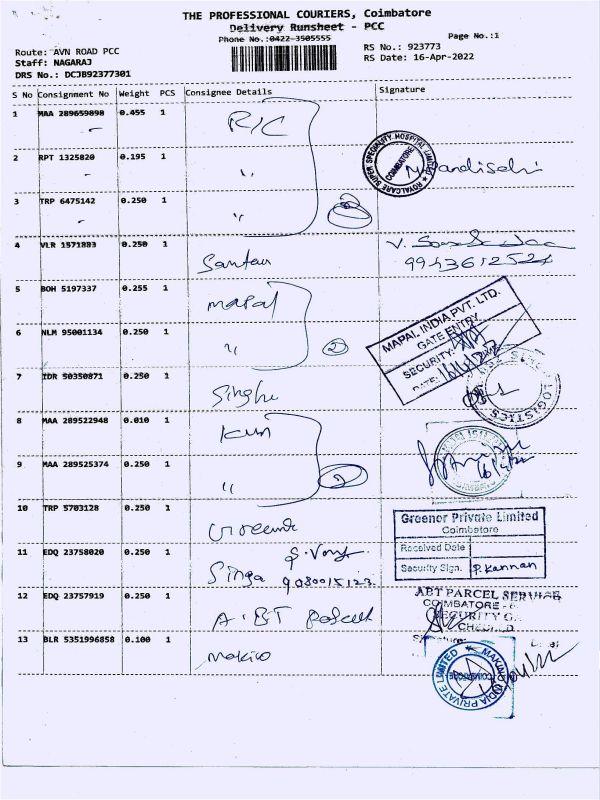 THE PROFESSIONAL COURIERS, Coimbatore
Delivery Runsheet - PCC
Phone No.:0422-3505555
Page No.:1
Route: AVN ROAD PCC
RS No.: 923773
Staff: NAGARAJ
RS Date: 16-Apr-2022
DRS No.: DCJB92377301
S No Consignment No Weight PCS Consignee Details Signature
1 MAA 289659898 0.455 1 R/C
2 RPT 1325820 0.195 1 "
ROYALCARE SUPER SPECIALITY HOSPITAL LIMITED
COIMBATORE
3 TRP 6475142 0.250 1 "
4 VLR 1571883 0.250 1
5 BOH 5197337 0.255 1 mapal
MAPAL INDIA PVT. LTD.
GATE ENTRY
SECURITY:
DATE:
6 NLM 95001134 0.250 1 " 2
7 IDR 50350871 0.250 1
LOGISTICS
8 MAA 289522948 0.010 1
9 MAA 289525374 0.250 1 "
10 TRP 5703128 0.250 1
Greenor Private Limited
Coimbatore
Received Date
Security Sign. P. Kannan
11 EDQ 23758020 0.250 1 Singa
12 EDQ 23757919 0.250 1 A.BT
ABT PARCEL SERVICE
COIMBATORE
SECURITY
13 BLR 5351996858 0.100 1
INDIA PRIVATE LIMITED